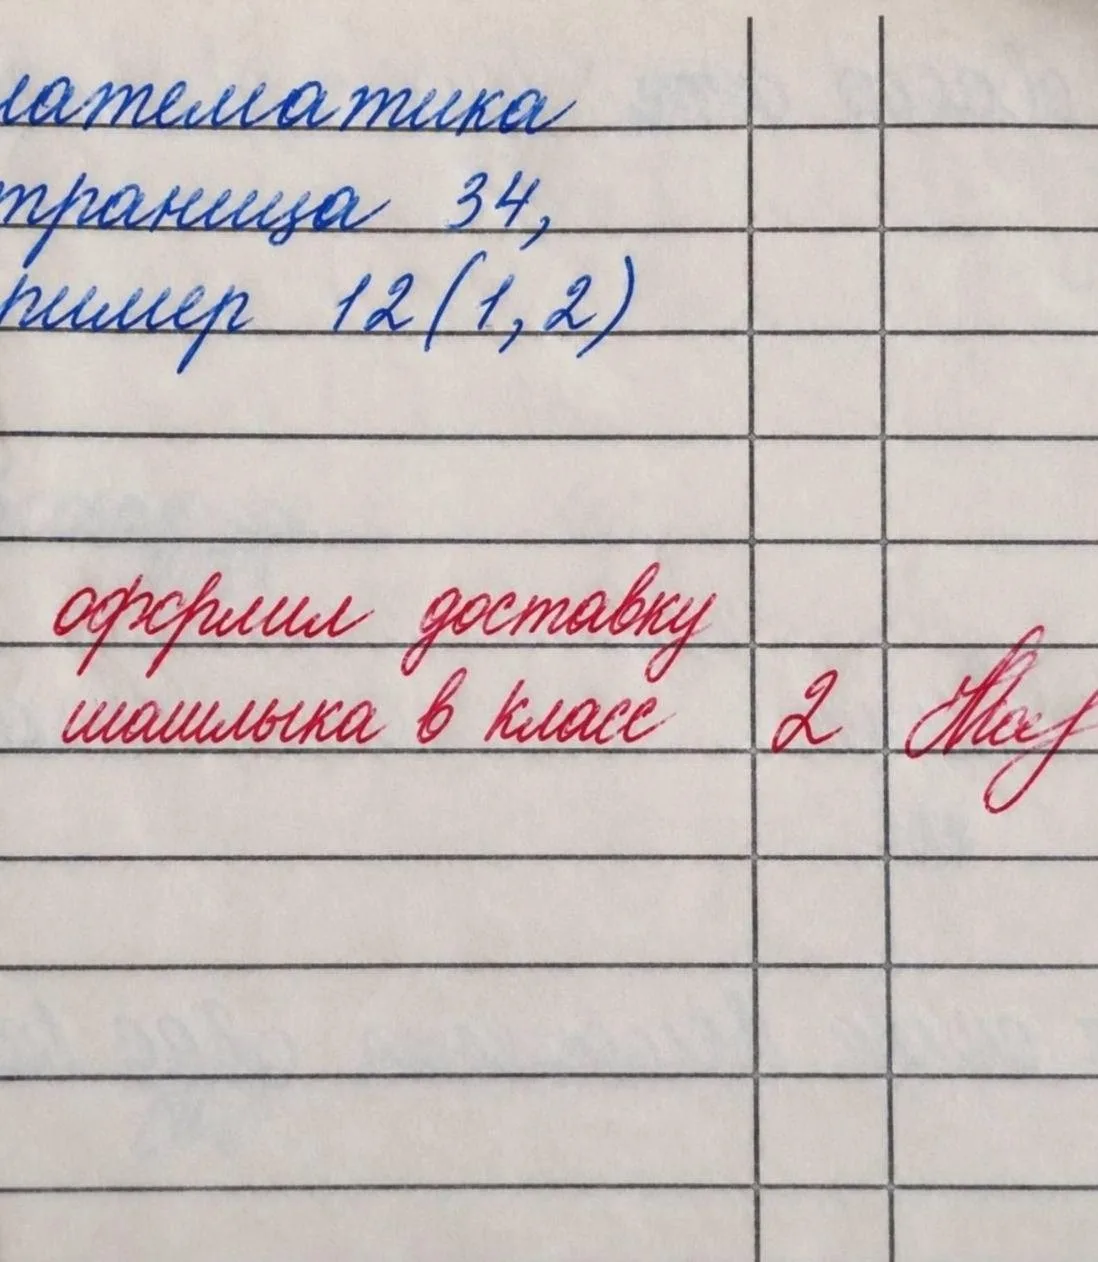 математика
траница 34,
ример 12 (1, 2)
оформил доставку
шашлыка в класс 2